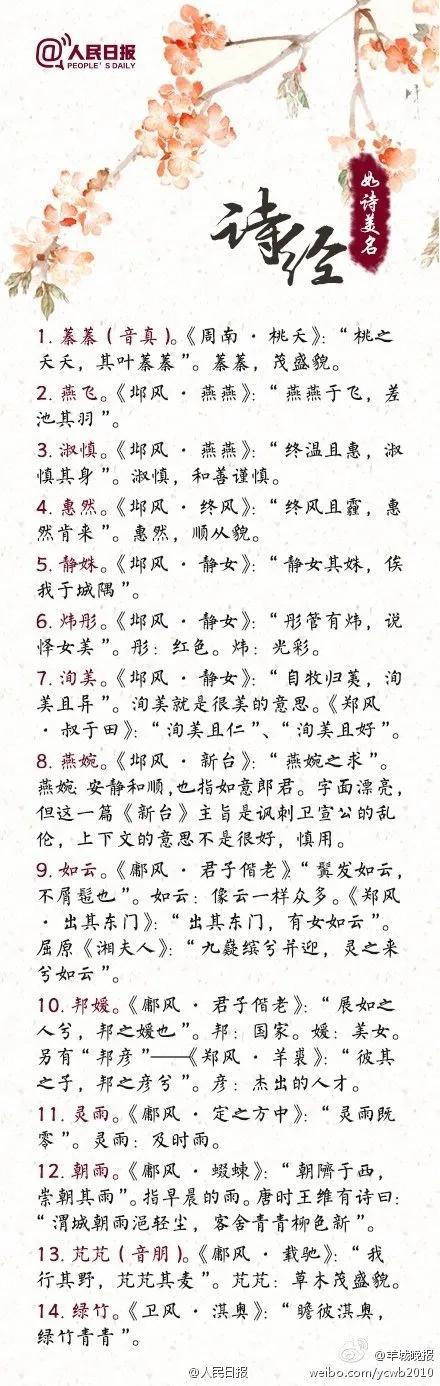 @人民日报
PEOPLE'S DAILY
诗经
如诗美名
1. 蓁蓁（音真）。《周南·桃夭》：“桃之
夭夭，其叶蓁蓁”。蓁蓁，茂盛貌。
2. 燕飞。《邶风·燕燕》：“燕燕于飞，差
池其羽”。
3. 淑慎。《邶风·燕燕》：“终温且惠，淑
慎其身”。淑慎，和善谨慎。
4. 惠然。《邶风·终风》：“终风且霾，惠
然肯来”。惠然，顺从貌。
5. 静姝。《邶风·静女》：“静女其姝，俟
我于城隅”。
6. 炜彤。《邶风·静女》：“彤管有炜，说
怿女美”。彤：红色。炜：光彩。
7. 洵美。《邶风·静女》：“自牧归荑，洵
美且异”。洵美就是很美的意思。《郑风
·叔于田》：“洵美且仁”、“洵美且好”。
8. 燕婉。《邶风·新台》：“燕婉之求”。
燕婉：安静和顺，也指如意郎君。字面漂亮，
但这一篇《新台》主旨是讽刺卫宣公的乱
伦，上下文的意思不是很好，慎用。
9. 如云。《鄘风·君子偕老》：“鬒发如云，
不屑髢也”。如云：像云一样众多。《郑风
·出其东门》：“出其东门，有女如云”。
屈原《湘夫人》：“九嶷缤兮并迎，灵之来
兮如云”。
10. 邦媛。《鄘风·君子偕老》：“展如之
人兮，邦之媛也”。邦：国家。媛：美女。
另有“邦彦”——《郑风·羊裘》：“彼其
之子，邦之彦兮”。彦：杰出的人才。
11. 灵雨。《鄘风·定之方中》：“灵雨既
零”。灵雨：及时雨。
12. 朝雨。《鄘风·蝃蝀》：“朝隮于西，
崇朝其雨”。指早晨的雨。唐时王维有诗曰：
“渭城朝雨浥轻尘，客舍青青柳色新”。
13. 芃芃（音朋）。《鄘风·载驰》：“我
行其野，芃芃其麦”。芃芃：草木茂盛貌。
14. 绿竹。《卫风·淇奥》：“瞻彼淇奥，
绿竹青青”。
@人民日报
@羊城晚报
weibo.com/ycwb2010